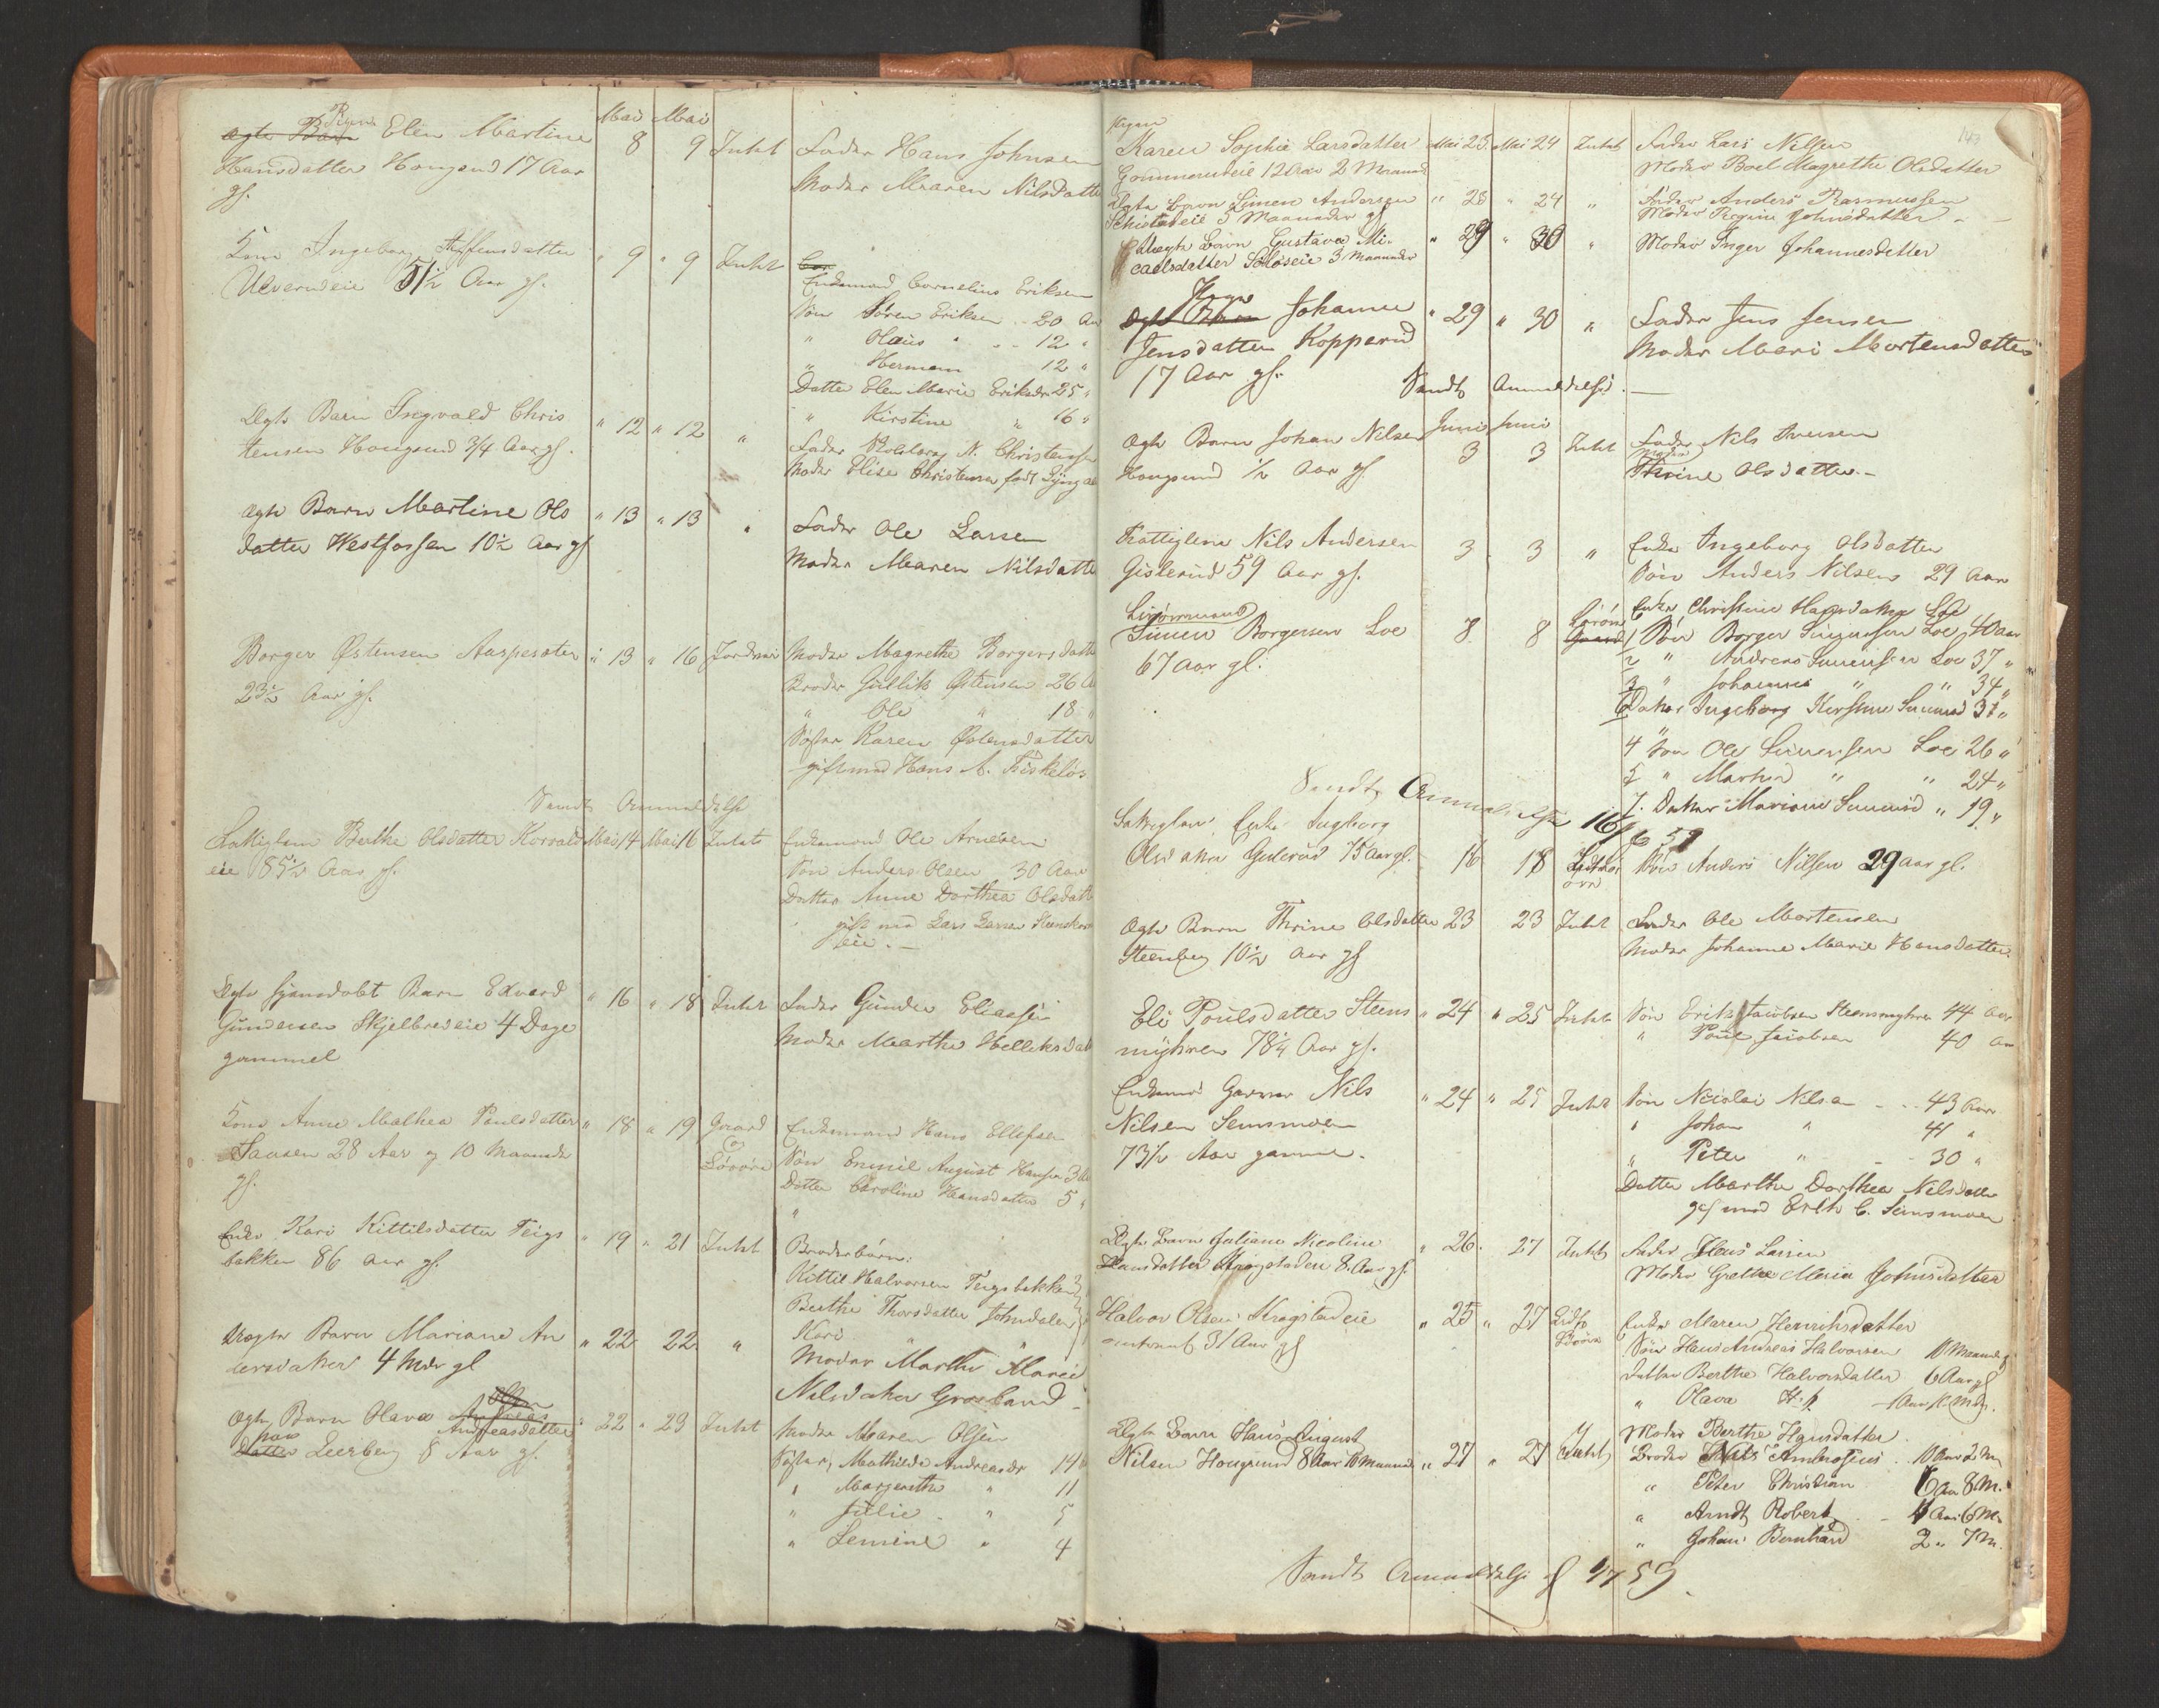 Mai Mai
Pigen
Ægte Barn Elen Martine 8 9 Intet Fader Hans Johnsen
Hansdatter Hougsund 17 Aar Moder Maren Nilsdatte
gl.
Kone Ingeborg Steffensdatter " 9 " 9 Intet
Ulverudeie 51½ Aar gl. Enkemand Cornelius Eriksen
Søn Søren Eriksen 20 Aar
" Hans " 12 "
" Herman 12 "
Datter Elen Marie Eriksdr 25 "
" Kirstine " 16 "
Ægte Barn Ingvald Chris " 12 " 12 " Fader N. Christensen
tensen Hougsund 3/4 Aar gl. Moder Elise Christensen født
Ægte Barn Martine Ols " 13 " 13 " Fader Ole Larsen
datter Westfossen 10½ Aar gl Moder Maren Nilsdatte
Borger Østensen Aasperoter " 13 " 16 Moder Magrethe Borgersdatte
23½ Aar gl. Broder Gullik Østensen 26 A
" Ole " 18 "
Søster Karen Østensdatter
gift med Hans A. Fiskeløs
Sendt Anmeldelse
Fattiglem Berthe Olsdatter Korvald Mai 14 Mai 16 Intet Enkemand Ole Arnesen
eie 85½ Aar gl. Søn Anders Olsen 30 Aar
Datter Anne Dorthea Olsdatt
gift med Lars Larsen
eie.
Ægte hjemdøbt Barn Edvard " 16 " 18 Intet Fader Gunder Eliasen
Gundersen Skjelbredeie 4 Dage Moder Marthe Helliksdat
gammel
Kone Anne Mathea Paulsdatter " 18 " 19 Gaard Enkemand Hans Ellefsen
28 Aar og 10 Maaneder og Søn Emmil August Hansen 3
gl. Løsøre Datter Caroline Hansdatter 5 "
Enke Kari Kittilsdatter Teigs " 19 " 21 Intet Broderbørn:
bakken 86 Aar gl. Kittil Halvorsen Teigsbakken
Berthe Thorsdatter Johndalen
Kari " "
Uægte Barn Mariane An " 22 22 " Moder Marthe Marie
dersdatter 4 Mdr gl Nilsdatter Grosland
Ægte Barn Olava Andreasdatter " 22 " 23 Intet Moder Maren Olsen
Leerberg 8 Aar gl. Søster, Mathilde Andreasdr 14
" Margrethe " 11
" Julie " 5
" Lemine " 4
147
Pigen
Karen Sophie Larsdatter Mai 23. Mai 24 Intet Fader Lars Nilsen
12 Aar 2 Maaned Moder Boel Magrethe Olsdatter
Ægte Barn Simen Andersen " 23 " 24 " Fader Anders Rasmussen
5 Maaneder gl Moder Regine Johnsdatter
Uægte Barn Gustava Mi- " 29 " 30 " Moder Inger Johannesdatter
caelsdatter 3 Maaneder
Pigen
Ægte Barn Johanne " 29 " 30 " Fader Jens Jensen
Jensdatter Kopperud Moder Mari Mortensdatter
17 Aar gl. Sendt Anmeldelse.
Juni Juni
Ægte Barn Johan Nilsen 3 3 Intet Fader Nils Iversen
Hougsund ½ Aar gl. Moder Thrine Olsdatter.
Fattiglem Nils Andersen 3 3 " Enke Ingeborg Olsdatter
Gislerud 59 Aar gl. Søn Anders Nilsen 29 Aar
Simen Borgersen Loe 8 8 Løsøre Enke Christine Hansdatter Loe
67 Aar gl. 1 Søn Borger Simensen Loe 40 aar
2 " Andreas Simensen Loe 37 "
3 " Johannes " " 34 "
6 Datter Ingeborg Kirstine Simensd 31 "
4 Søn Ole Simensen Loe 26 "
5 " Martin " " 24 "
7. Datter Mariane Simensd " 19 "
Sendt Anmeldelse 16/6 59
Fattiglem Enke Ingeborg
Olsdatter Gislerud 75 Aar gl. 16 18 Søn Anders Nilsen 29 aar gl.
Ægte Barn Thrine Olsdatter 23 23 Intet Fader Ole Mortensen
Steenberg 10½ Aar gl Moder Johanne Marie Hansdatter.
Eli Poulsdatter Steens " 24 " 25 Intet Søn Erik Jacobsen Steensmyhren 44 Aar
myhren 78¼ Aar gl. " Poul Jacobsen 40 Aa
Enkemd Garver Nils " 24 " 25 Intet Søn Nicolai Nilsen 43 Aar
Nilsen Semsmoen " Johan " 41 "
73½ Aar gammel. " Peter " 30 "
Datter Marthe Dorthea Nilsdatter
gift med Erik C. Semsmoen
Ægte Barn Juliane Nicoline " 26. 27 Intet Fader Hans Larsen
Hansdatter Krogstadeie 8. Aar gl. Moder Grethe Maria Johnsdatter
Halvor Olsen Krogstadeie " 25 " 27 Enke Maren Henrichsdatter
31 Aar gl Søn Hans Andreas Halvorsen 10 Maaneder
Datter Berthe Halvorsdatter 6 Aar gl
" Olava
Ægte Barn Hans August Moder Berthe Hansdatter
Nilsen Hougsund 8 Aar 10 Maaned " 27 " 27 Intet Broder Nils Ambrosius 10 Aar 2 M
" Peter Christian 6 Aar 8 M.
" Arndt Robert 4 Aar 6 M.
" Johan Bernhard 2 " 7 M.
Sendt Anmeldelse 59